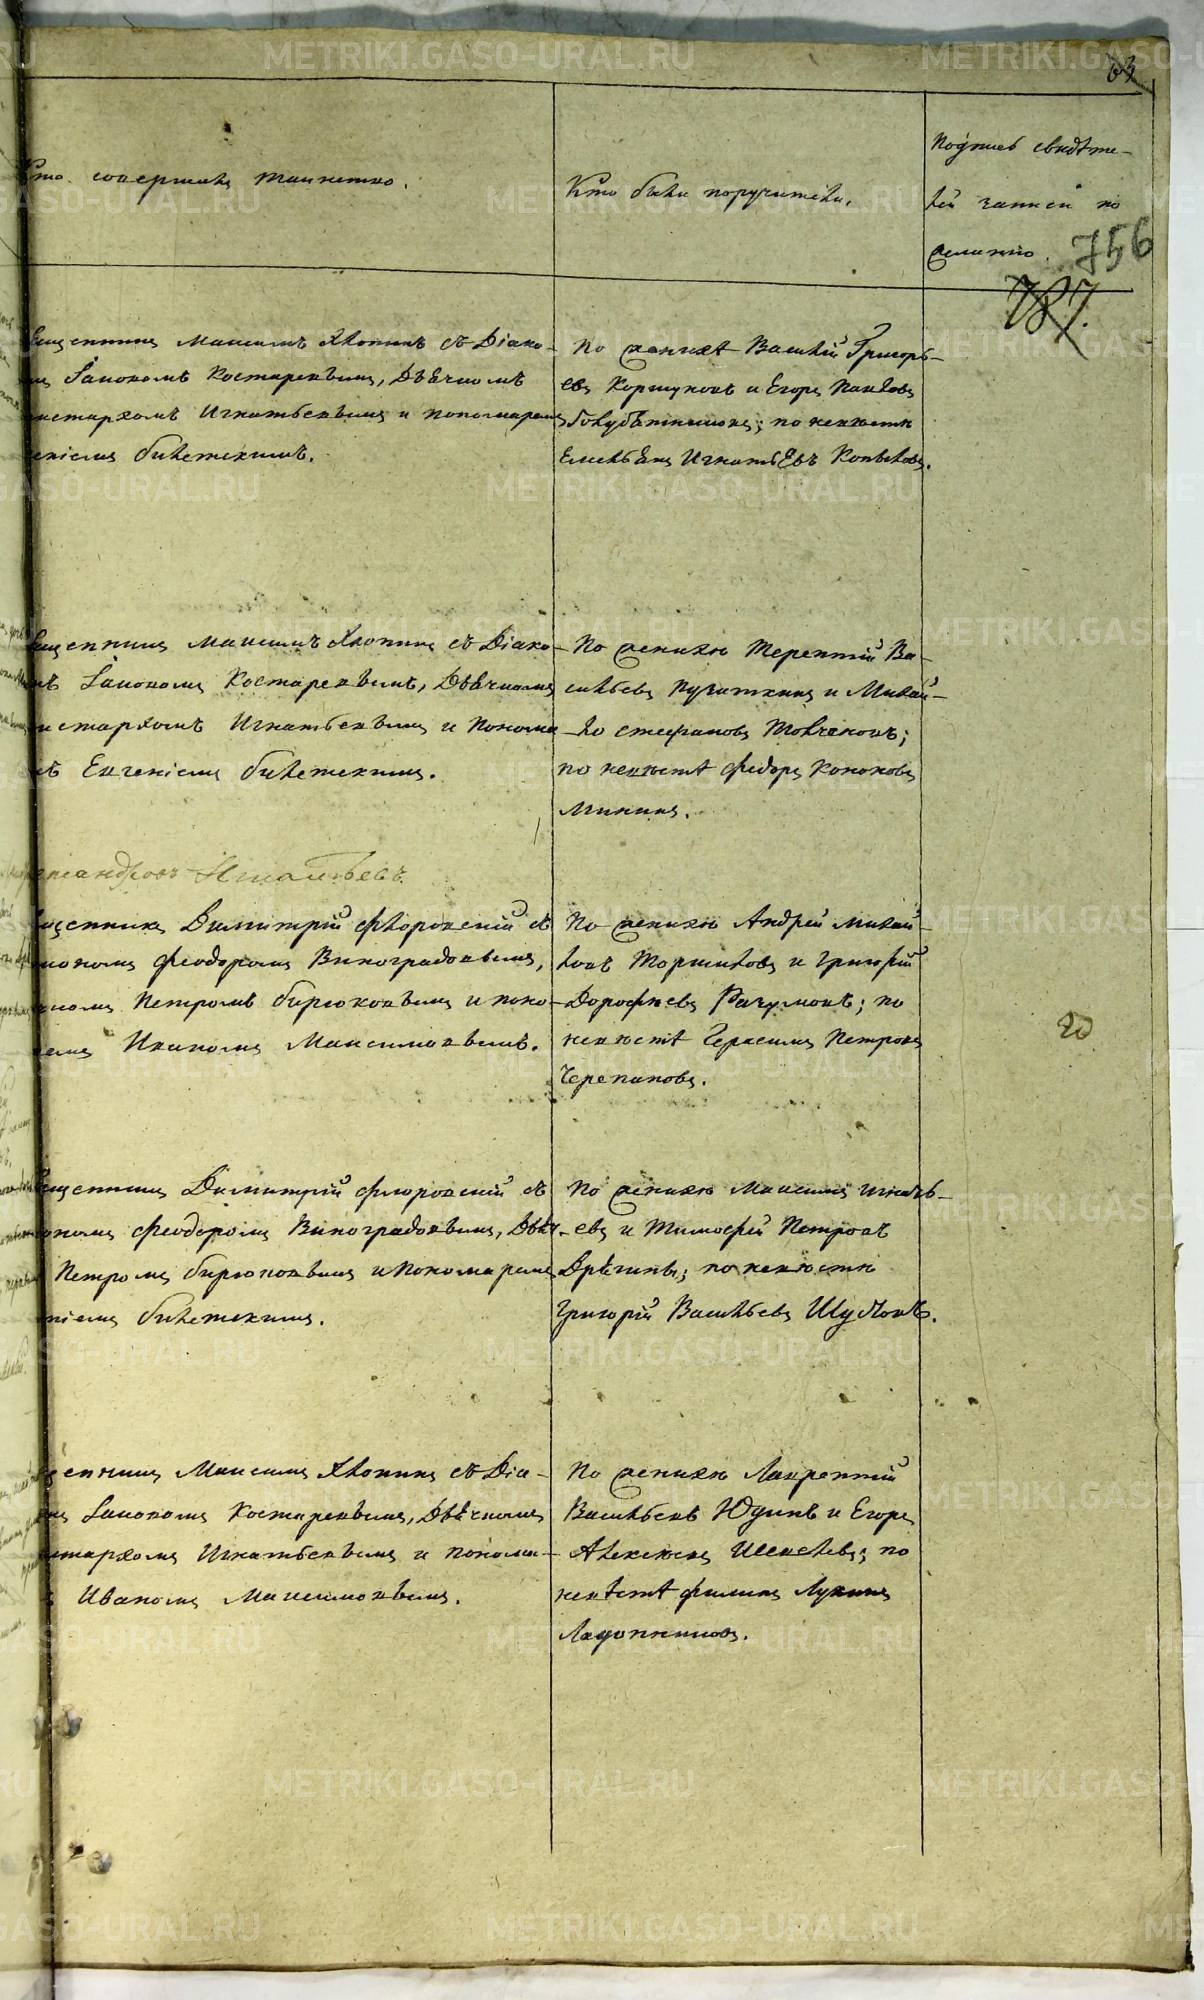 63
Кто совершалъ таинство.
Кто были поручители.
Подпись свидѣте-
лей записи по
желанію.
756
787.
Священникъ Максимъ Хлопинъ съ Діако-
Іаковомъ Костаревымъ, Дьячкомъ
Аристархомъ Игнатьевымъ и пономаремъ
Евгеніемъ билетскимъ.
По женихѣ Василій Григорь-
евъ Коршуновъ и Егоръ Павловъ
Голубятниковъ; по невѣстѣ
Емельянъ Игнатьевъ Копыловъ.
Священникъ Максимъ Хлопинъ съ Діако-
Іаковомъ Костаревымъ, Дьячкомъ
Аристархомъ Игнатьевымъ и Понома-
Евгеніемъ билетскимъ.
По женихѣ Терентій Ва-
сильевъ Пугаткинъ и Михай-
ло стефановъ Толченовъ;
по невѣстѣ федоръ Кононовъ
Мининъ.
Игнатьевъ
Священникъ Димитрій флоровскій съ
Діакономъ феодоромъ Виноградовымъ,
Петромъ бирюковымъ и поно-
Иваномъ Максимовымъ.
По женихѣ Андрей Михай-
ловъ Торшиловъ и Григорій
Дорофѣевъ Рагумовъ; по
невѣстѣ Герасимъ Петровъ
Черепановъ.
20
Священникъ Димитрій флоровскій съ
Діакономъ феодоромъ Виноградовымъ, Дьяч-
Петромъ бирюковымъ и Пономаремъ
Евгеніемъ билетскимъ.
По женихѣ Максимъ Игнать-
евъ и Тимофей Петровъ
Дрягины; по невѣстѣ
Григорій Васильевъ Шубовъ.
Священникъ Максимъ Хлопинъ съ Діа-
Іаковомъ Костаревымъ, Дьячкомъ
Аристархомъ Игнатьевымъ и понома-
Иваномъ Максимовымъ.
По женихѣ Лаврентій
Васильевъ Юдинъ и Егоръ
Алексѣевъ по
невѣстѣ филипъ Лукинъ
Ладонниковъ.